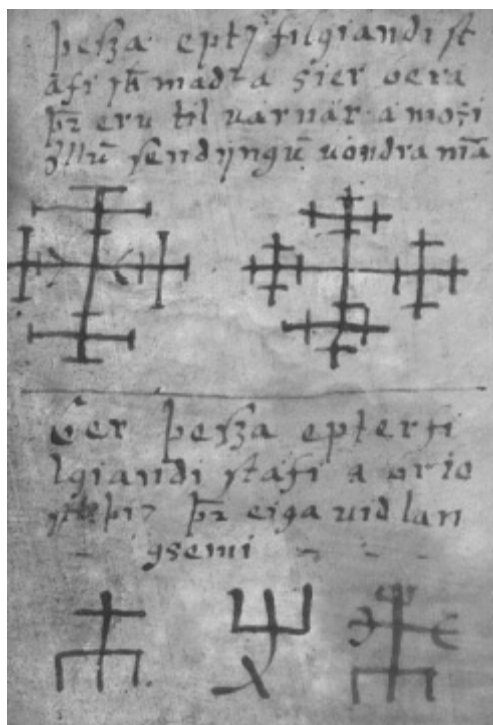 þesza epter filgiandi st
afi sk madr a sier bera
þr eru til varnar a moti
ollū sendijngū vondra mā
Ger þesza epterfi
lgiandi stafi a brio
þr eiga vid lan
gsemi